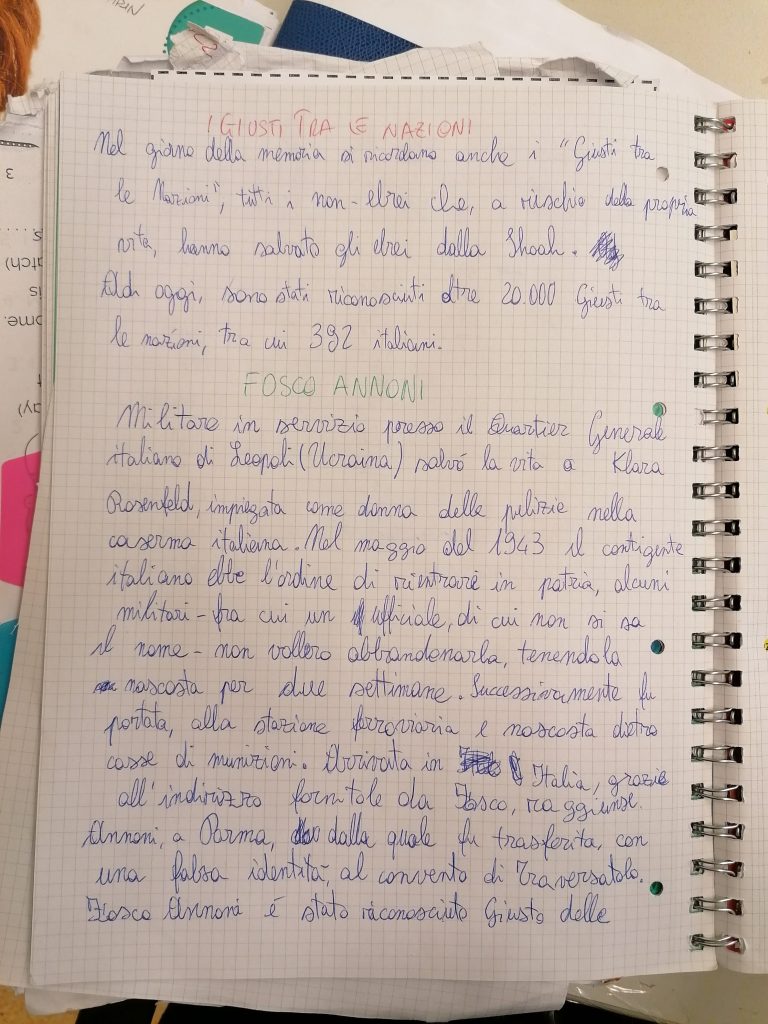 I GIUSTI TRA LE NAZIONI
Nel giorno della memoria si ricordano anche i "Giusti tra
le Nazioni", tutti i non-ebrei che, a rischio della propria
vita, hanno salvato gli ebrei dalla Shoah.
Ad oggi, sono stati riconosciuti oltre 20.000 Giusti tra
le nazioni, tra cui 392 italiani.
FOSCO ANNONI
Militare in servizio presso il Quartier Generale
italiano di Leopoli (Ucraina) salvò la vita a Klara
Rosenfeld, impiegata come donna delle pulizie nella
caserma italiana. Nel maggio del 1943 il contigente
italiano ebbe l'ordine di rientrare in patria, alcuni
militari - fra cui un ufficiale, di cui non si sa
il nome - non vollero abbandonarla, tenendola
nascosta per due settimane. Successivamente fu
portata, alla stazione ferroviaria e nascosta dietro
casse di munizioni. Arrivata in Italia, grazie
all'indirizzo fornitole da Fosco, raggiunse
Annoni, a Parma, dalla quale fu trasferita, con
una falsa identità, al convento di Traversatolo.
Fosco Annoni é stato riconosciuto Giusto delle
3